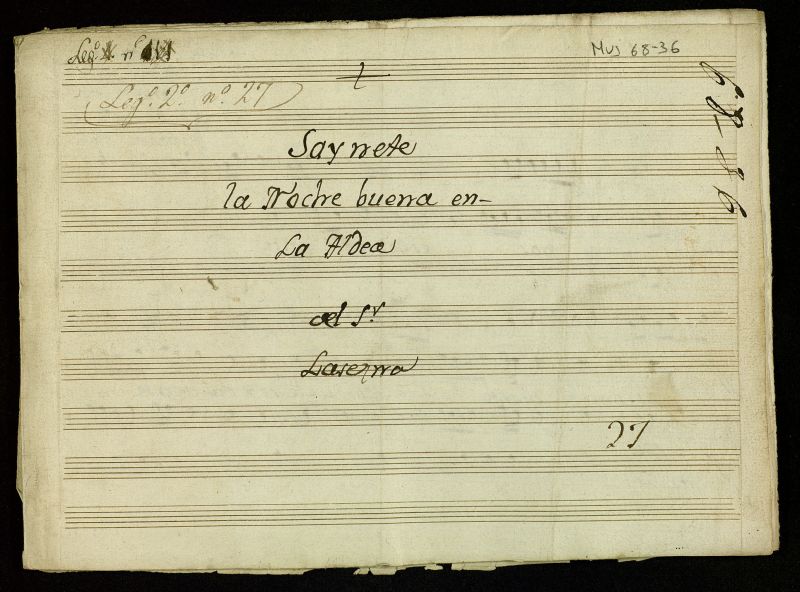 Leg.º nº
Mus 68-36
Leg.º 2º nº 27
68-36
Saynete
la Noche buena en-
La Aldea
del S.r
Laserna
27